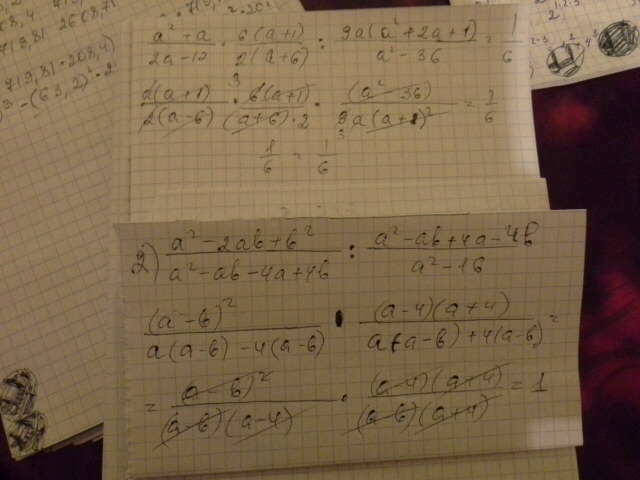 719,81 2608,71
719,81 - 208,4)
)³ - (63,2)² · 2
(a² + a)/(2a - 12) · 6(a+1)/2(a+6) : 9a(a² + 2a + 1)/(a² - 36) = 1/6
2(a+1)/2(a-6) · 6(a+1)/(a+6)·2 · (a² 36)/9a(a+1)² = 1/6
1/6 = 1/6
2) (a² - 2ab + b²)/(a² - ab - 4a + 4b) : (a² - ab + 4a - 4b)/(a² - 16)
(a - b)²/(a(a-b) - 4(a-b)) · (a-4)(a+4)/(a(a-b) + 4(a-b)) =
= (a - b)²/(a-b)(a-4) · (a-4)(a+4)/(a-b)(a+4) = 1